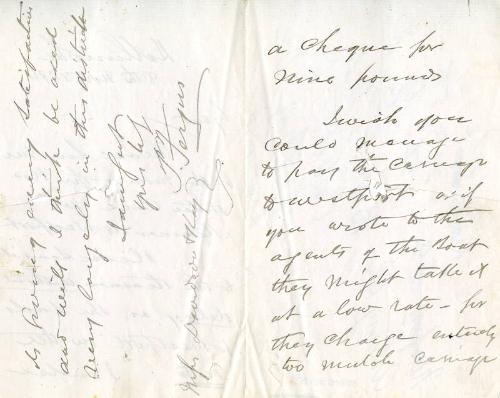 a cheque for
nine pounds
I wish you
could manage
to pay the carriage
to Westport as if
you wrote to the
agents of the Boat
they might take it
at a low rate - for
they charge entirely
too mutch carriage
is giving every satisfaction
and will I think be used
very largely in this district
I am Gent
yours tly
Fergus